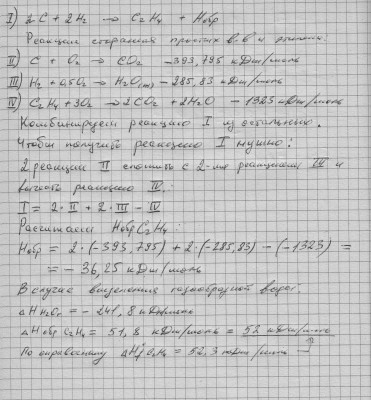 I) 2C + 2H₂ → C₂H₄ + Hобр
Реакции сгорания простых в-в и этилена:
II) C + O₂ → CO₂ -393,795 кДж/моль
III) H₂ + 0,5O₂ → H₂O(ж) -285,83 кДж/моль
IV) C₂H₄ + 3O₂ → 2CO₂ + 2H₂O - 1323 кДж/моль
Комбинируем реакцию I из остальных.
Чтобы получить реакцию I нужно:
2 реакции II сложить с 2-мя реакциями III и
вычесть реакцию IV:
I = 2·II + 2·III - IV
Рассчитаем Hобр C₂H₄:
Hобр = 2·(-393,795) + 2·(-285,83) - (-1323) =
= - 36,25 кДж/моль
В случае выделения газообразной воды:
ΔH H₂Oг = - 241,8 кДж/моль
ΔH обр C₂H₄ = 51,8 кДж/моль = 52 кДж/моль
По справочнику ΔH C₂H₄ = 52,3 кДж/моль